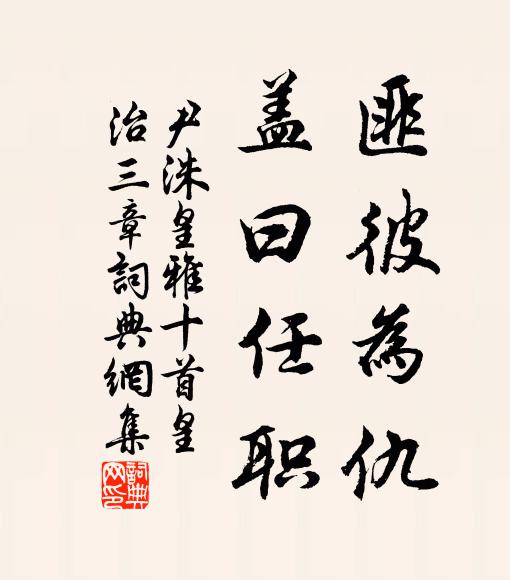 匪彼為仇
盖曰任职
尹洙皇雅十首皇
治三章詞典網集
詞典
网印